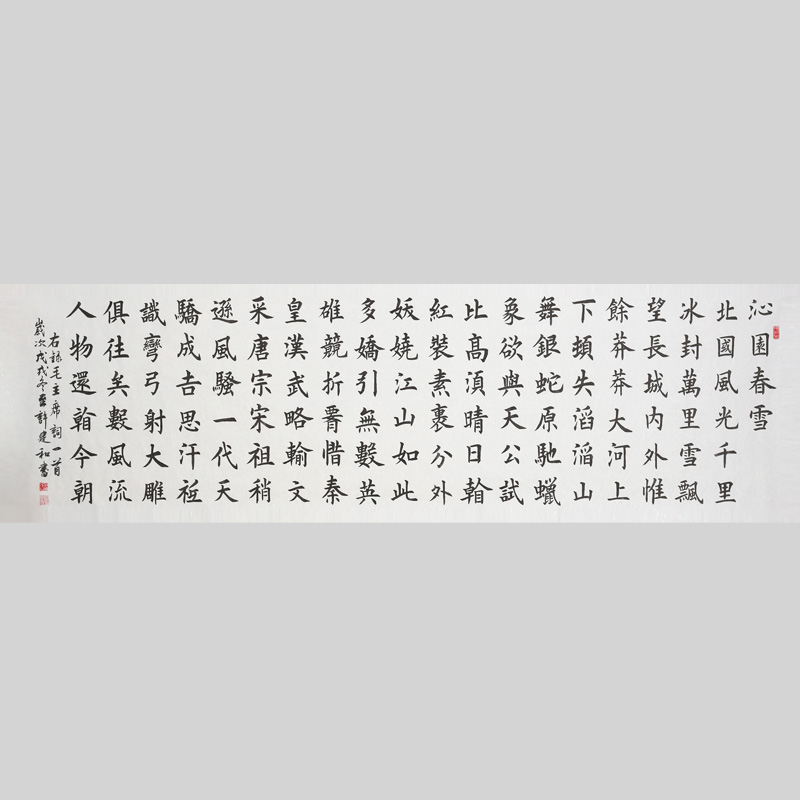 沁園春雪
北國風光千里
冰封萬里雪飄
望長城内外惟
餘莽莽大河上
下頓失滔滔山
舞銀蛇原馳蠟
象欲與天公試
比高須晴日看
紅裝素裹分外
妖嬈江山如此
多嬌引無數英
雄競折腰惜秦
皇漢武略輸文
采唐宗宋祖稍
遜風騷一代天
驕成吉思汗祗
識彎弓射大雕
俱往矣數風流
人物還看今朝
右錄毛主席詞一首
歲次戊戌冬至許建和書